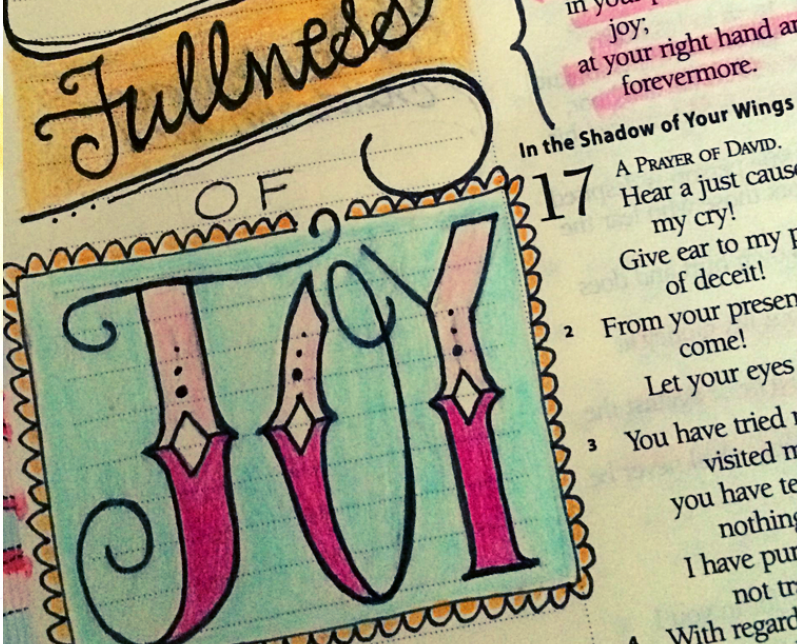 Fullness
OF
JOY
in your
joy;
at your right hand
forevermore.
In the Shadow of Your Wings
17 A PRAYER OF DAVID.
Hear a just cause
my cry!
Give ear to my
of deceit!
2 From your
come!
Let your eyes
3 You have tried
visited
you have
nothing
I have
not
4 With